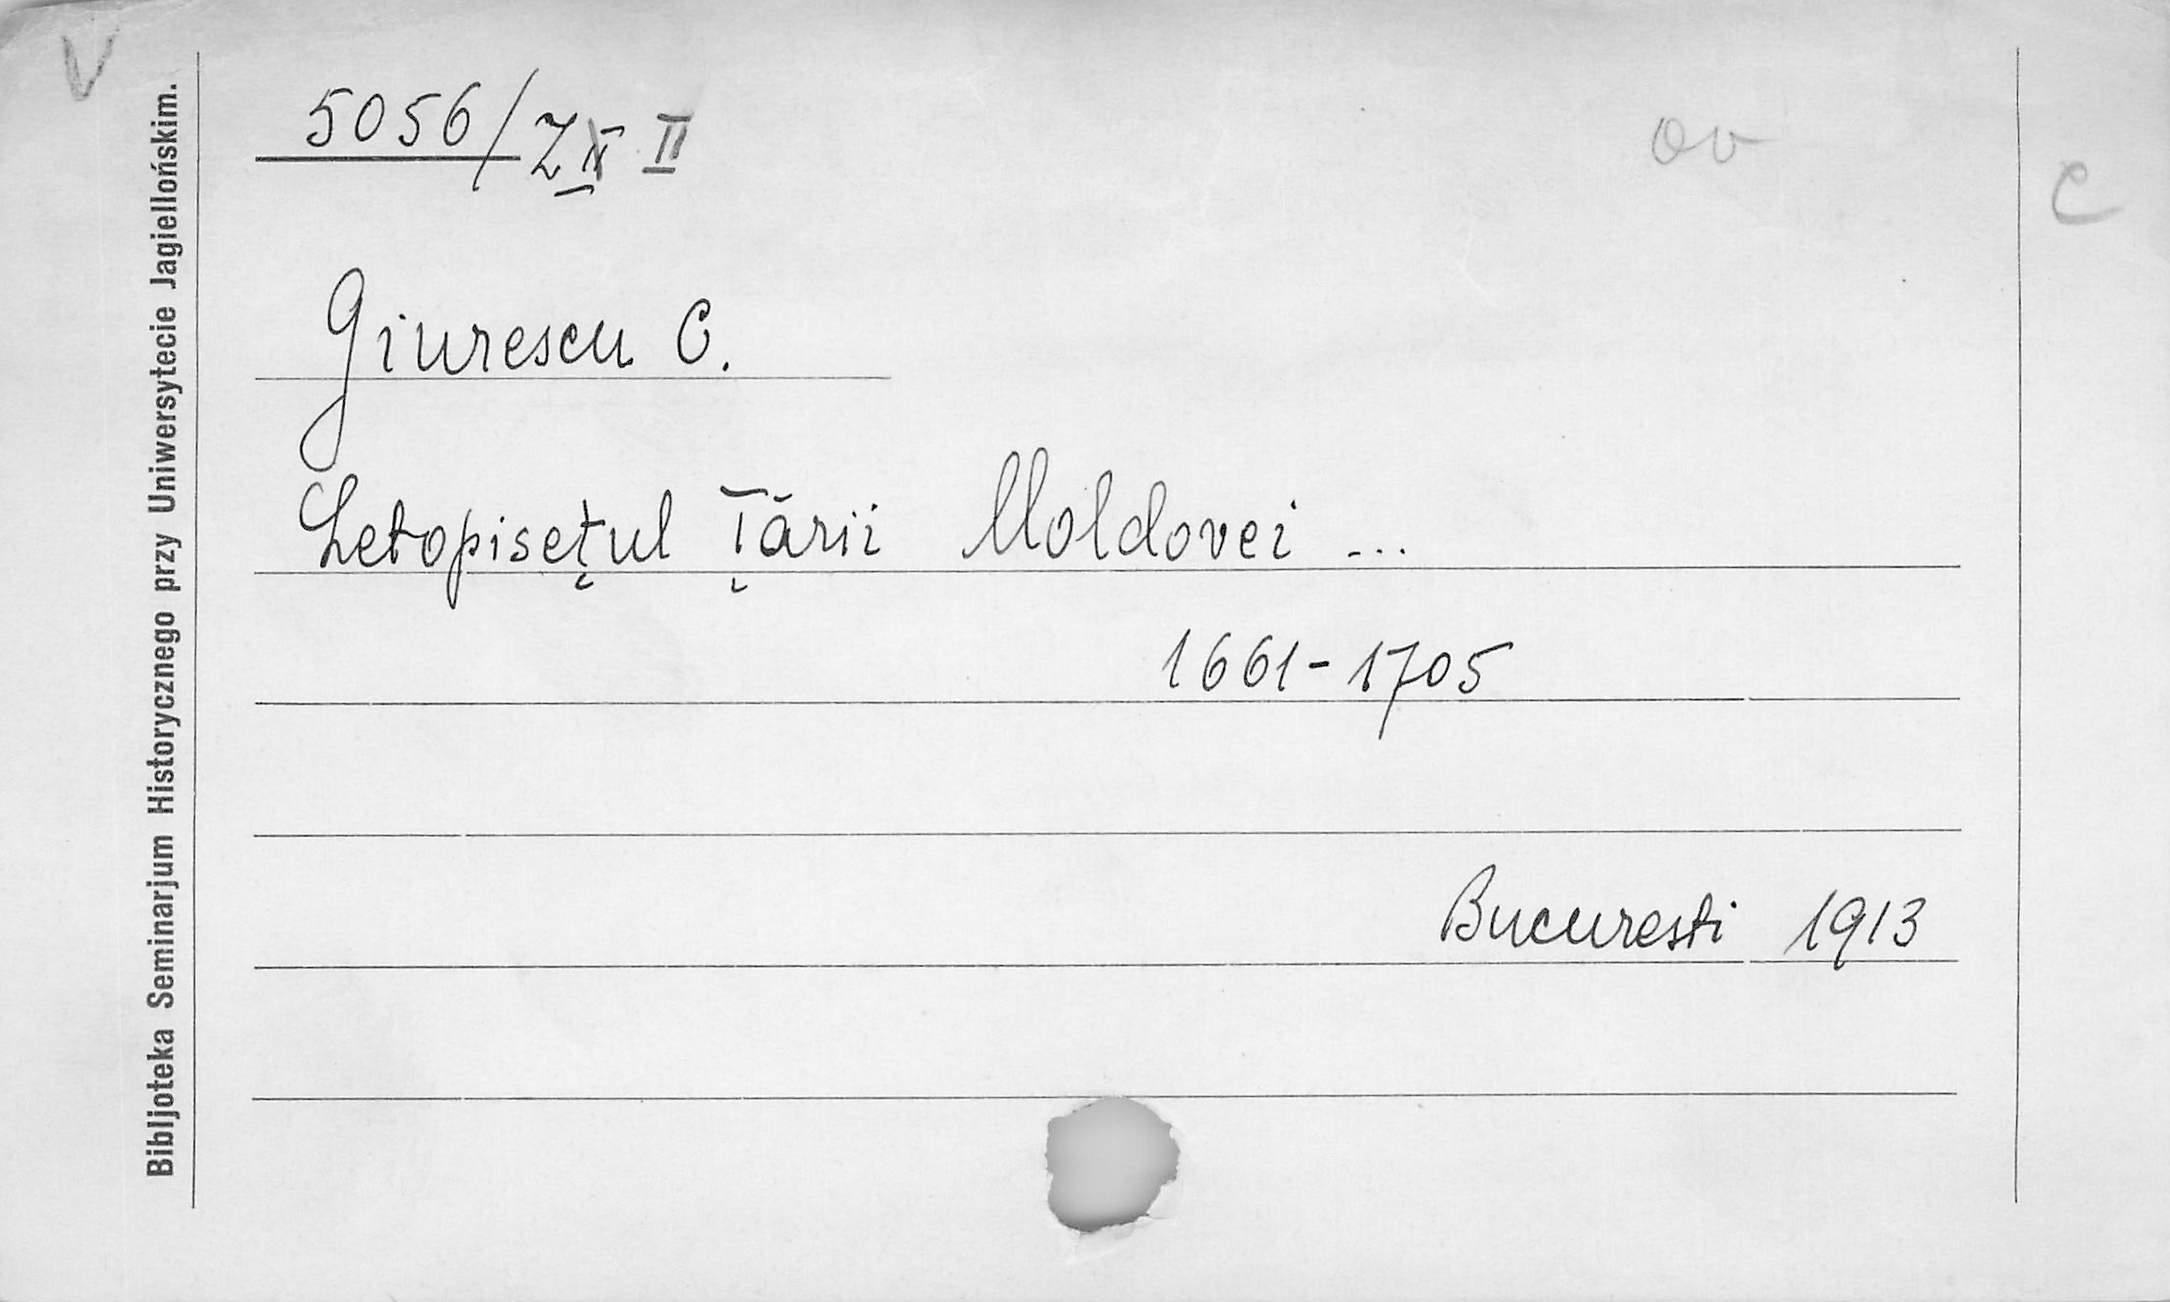 V
5056/Z II
ov
c
Giurescu C.
Letopisețul Țării Moldovei ...
1661-1705
Bucuresti 1913
Bibljoteka Seminarjum Historycznego przy Uniwersytecie Jagiellońskim.